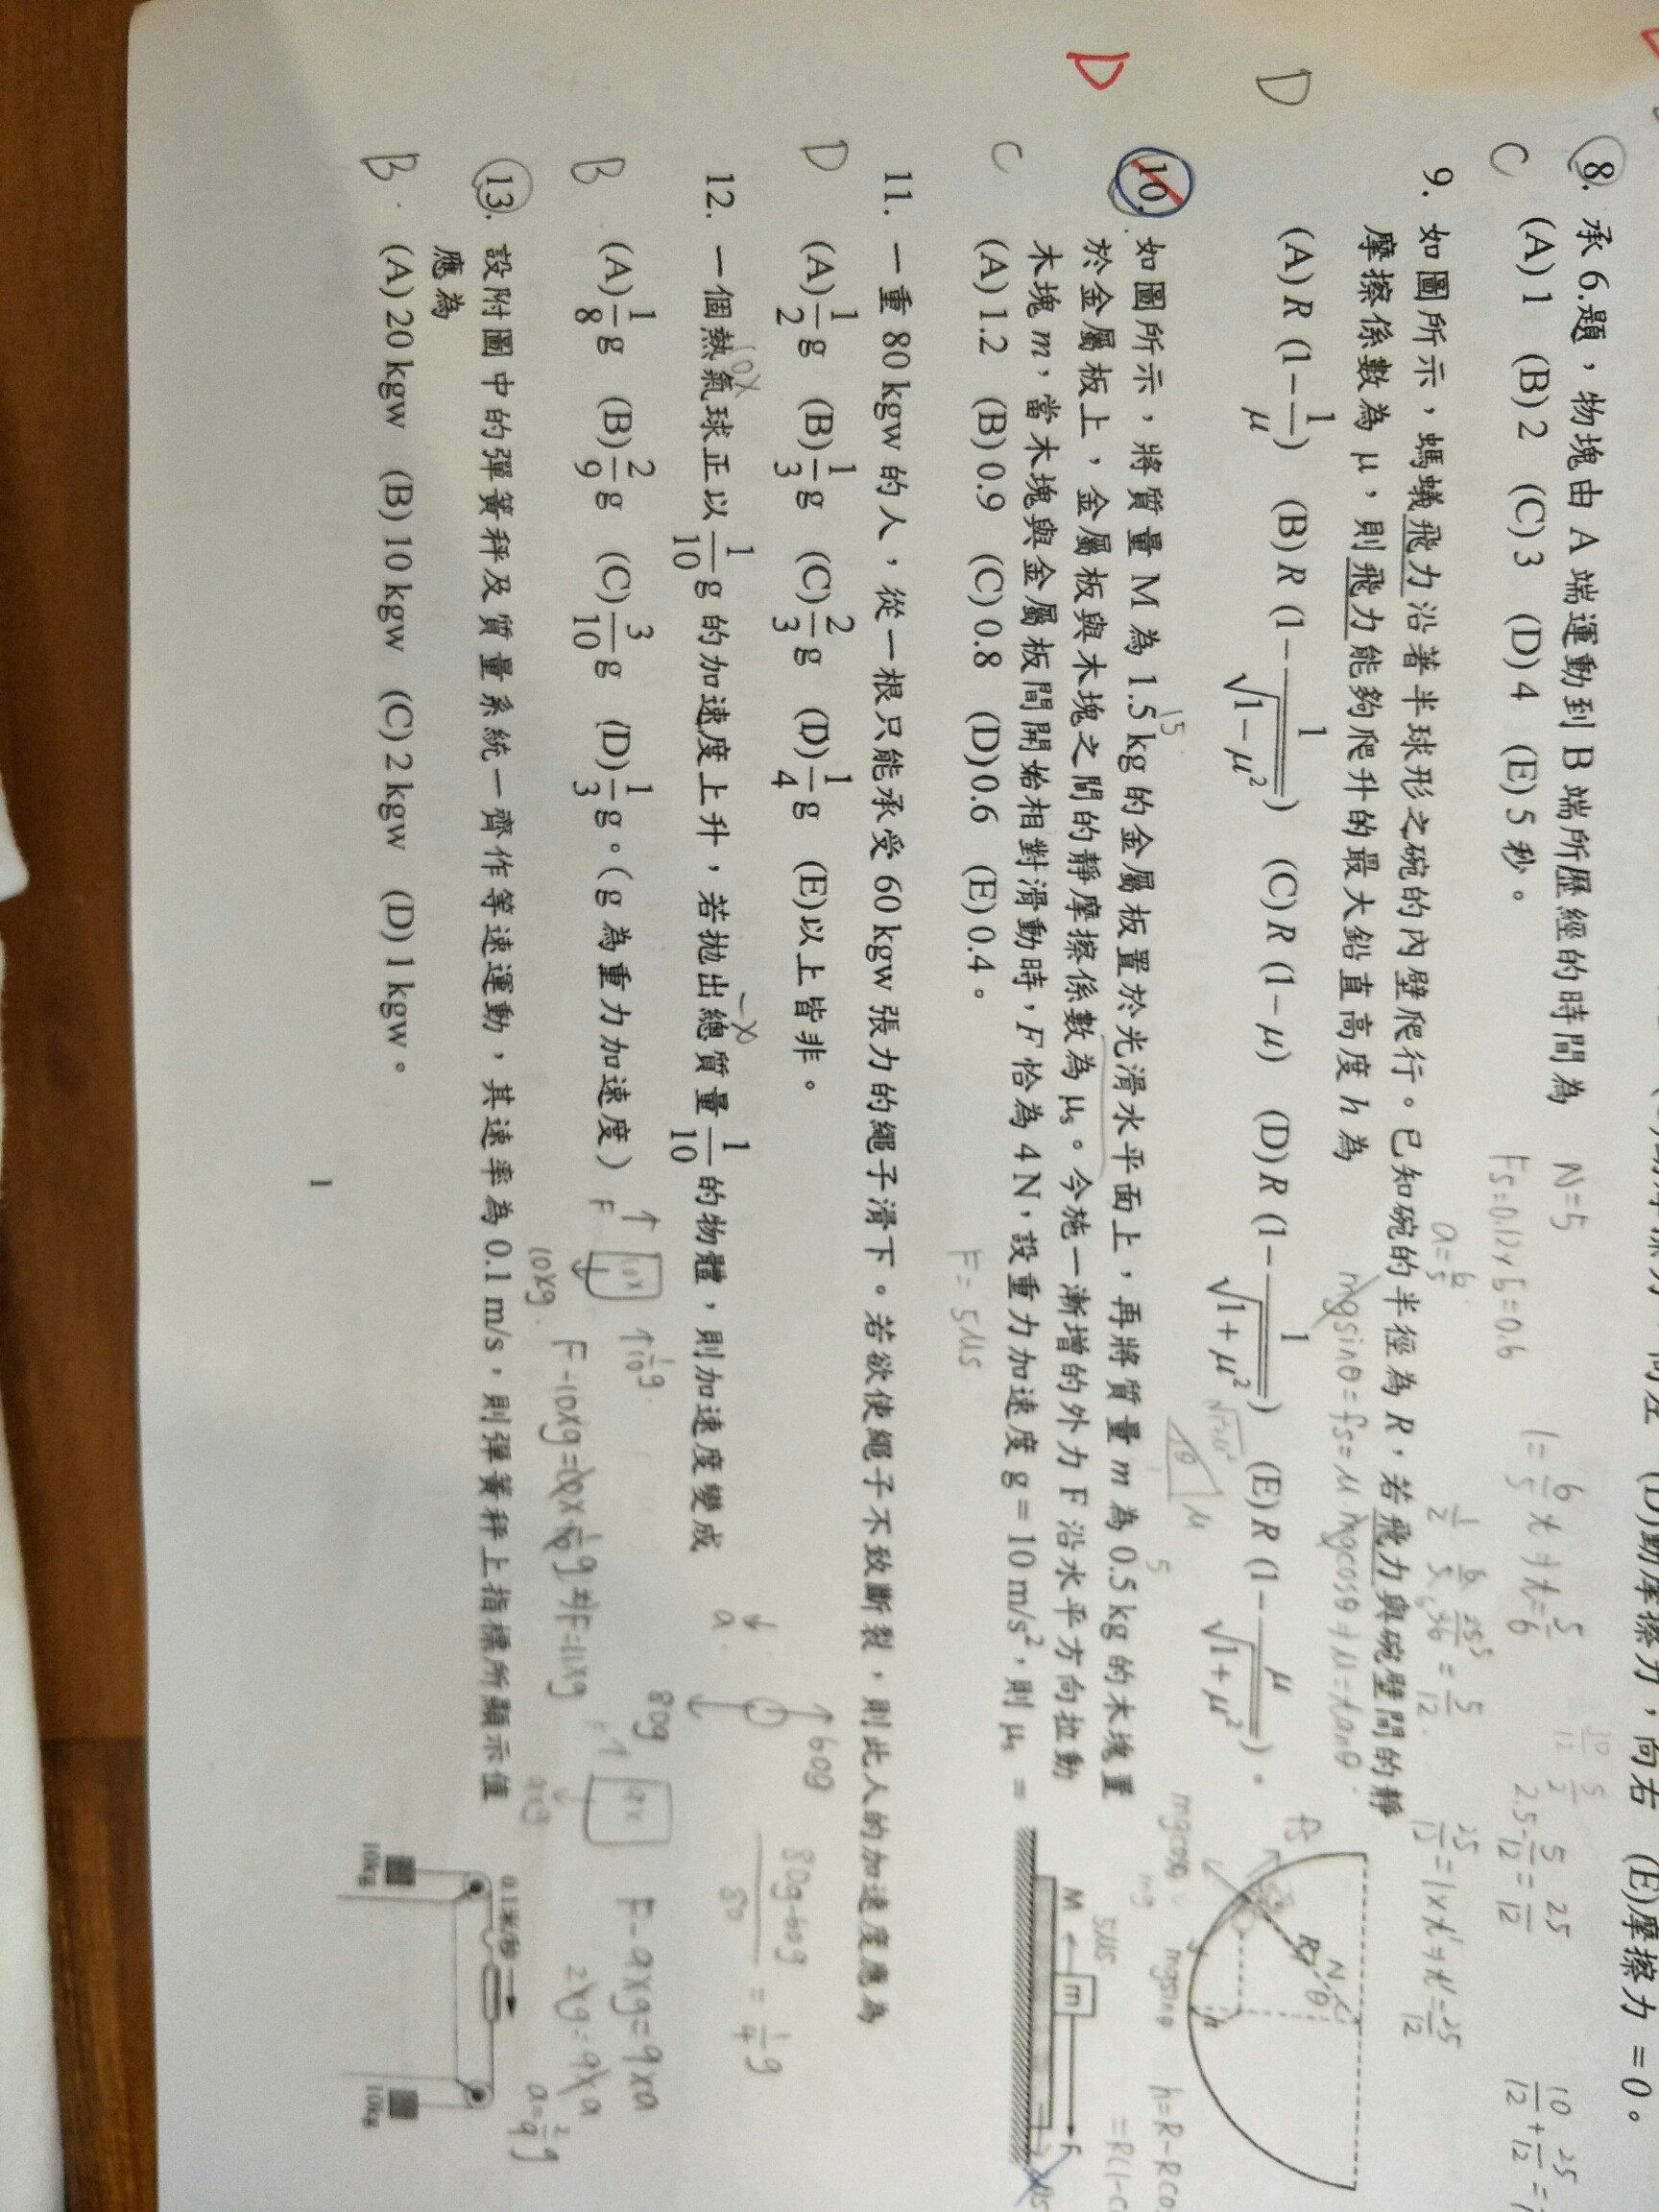 8. 承 6.題，物塊由 A 端運動到 B 端所歷經的時間為
C (A) 1 (B) 2 (C) 3 (D) 4 (E) 5 秒。
N=5
9. 如圖所示，螞蟻飛力沿著半球形之碗的內壁爬行。已知碗的半徑為 R，若飛力與碗壁間的靜
摩擦係數為 μ，則飛力能夠爬升的最大鉛直高度 h 為
mgsinθ=fs=μ·mgcosθ⇒μ=tanθ
D (A) R (1-1/μ) (B) R (1-1/√(1-μ²)) (C) R (1-μ) (D) R (1-1/√(1+μ²)) (E) R (1-μ/√(1+μ²))。
fs
R
N
θ
h
mgcosθ
mg
mgsinθ
D
10. 如圖所示，將質量 M 為 1.5 kg 的金屬板置於光滑水平面上，再將質量 m 為 0.5 kg 的木塊置
於金屬板上，金屬板與木塊之間的靜摩擦係數為 μs。今施一漸增的外力 F 沿水平方向拉動
木塊 m，當木塊與金屬板間開始相對滑動時，F 恰為 4 N，設重力加速度 g = 10 m/s²，則 μs =
C (A) 1.2 (B) 0.9 (C) 0.8 (D) 0.6 (E) 0.4。
F=5μs
5μs
M
m
F
11. 一重 80 kgw 的人，從一根只能承受 60 kgw 張力的繩子滑下。若欲使繩子不致斷裂，則此人的加速度應為
D (A) 1/2 g (B) 1/3 g (C) 2/3 g (D) 1/4 g (E)以上皆非。
a
60g
80g
80g-60g/80 = 1/4 g
12. 一個熱氣球正以 1/10 g 的加速度上升，若拋出總質量 1/10 的物體，則加速度變成
10x
-x
B (A) 1/8 g (B) 2/9 g (C) 3/10 g (D) 1/3 g。（g 為重力加速度）
F
10x
10xg
1/10 g
F-10xg=10x·1/10 g⇒F=11xg
F
9x
9xg
F-9xg=9xa
2xg=9xa
a=2/9 g
13. 設附圖中的彈簧秤及質量系統一齊作等速運動，其速率為 0.1 m/s，則彈簧秤上指標所顯示值
應為
B (A) 20 kgw (B) 10 kgw (C) 2 kgw (D) 1 kgw。
0.1米/秒
10kg
10kg
1